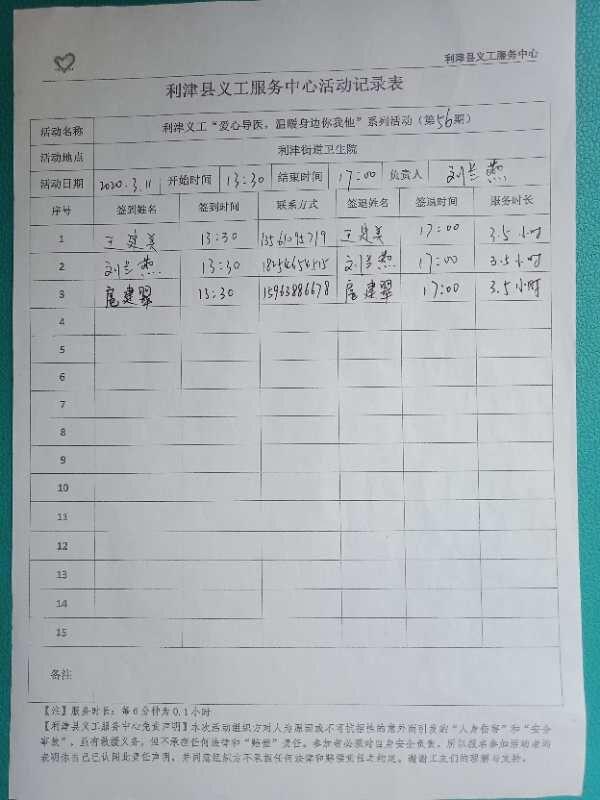 利津县义工服务中心
利津县义工服务中心活动记录表
活动名称 利津义工“爱心导医，温暖身边你我他”系列活动（第56期）
活动地点 利津街道卫生院
活动日期 2020.3.11 开始时间 13:30 结束时间 17:00 负责人 刘兰燕
序号 签到姓名 签到时间 联系方式 签退姓名 签退时间 服务时长
1 王建美 13:30 王建美 17:00 3.5小时
2 刘兰燕 13:30 刘兰燕 17:00 3.5小时
3 扈建翠 13:30 15963886678 扈建翠 17:00 3.5小时
4
5
6
7
8
9
10
11
12
13
14
15
备注
【注】服务时长：每6分钟为0.1小时
【利津县义工服务中心免责声明】本次活动组织方对人为原因或不可抗拒性的意外而引发的“人身伤害”和“安全
事故”，虽有救援义务，但不承担任何法律和“赔偿”责任。参加者必须对自身安全负责，所以报名参加活动者均
表明你自己已认同此责任声明，并同意组织方不承担任何法律和赔偿责任之约定。谢谢工友们的理解与支持。